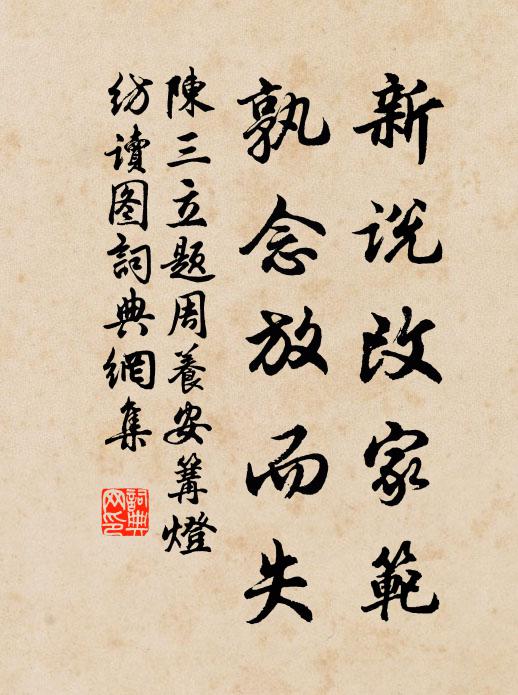 新説改家範
孰念放而失
陳三立題周養安篝燈
紡讀图詞典網集
詞典网印